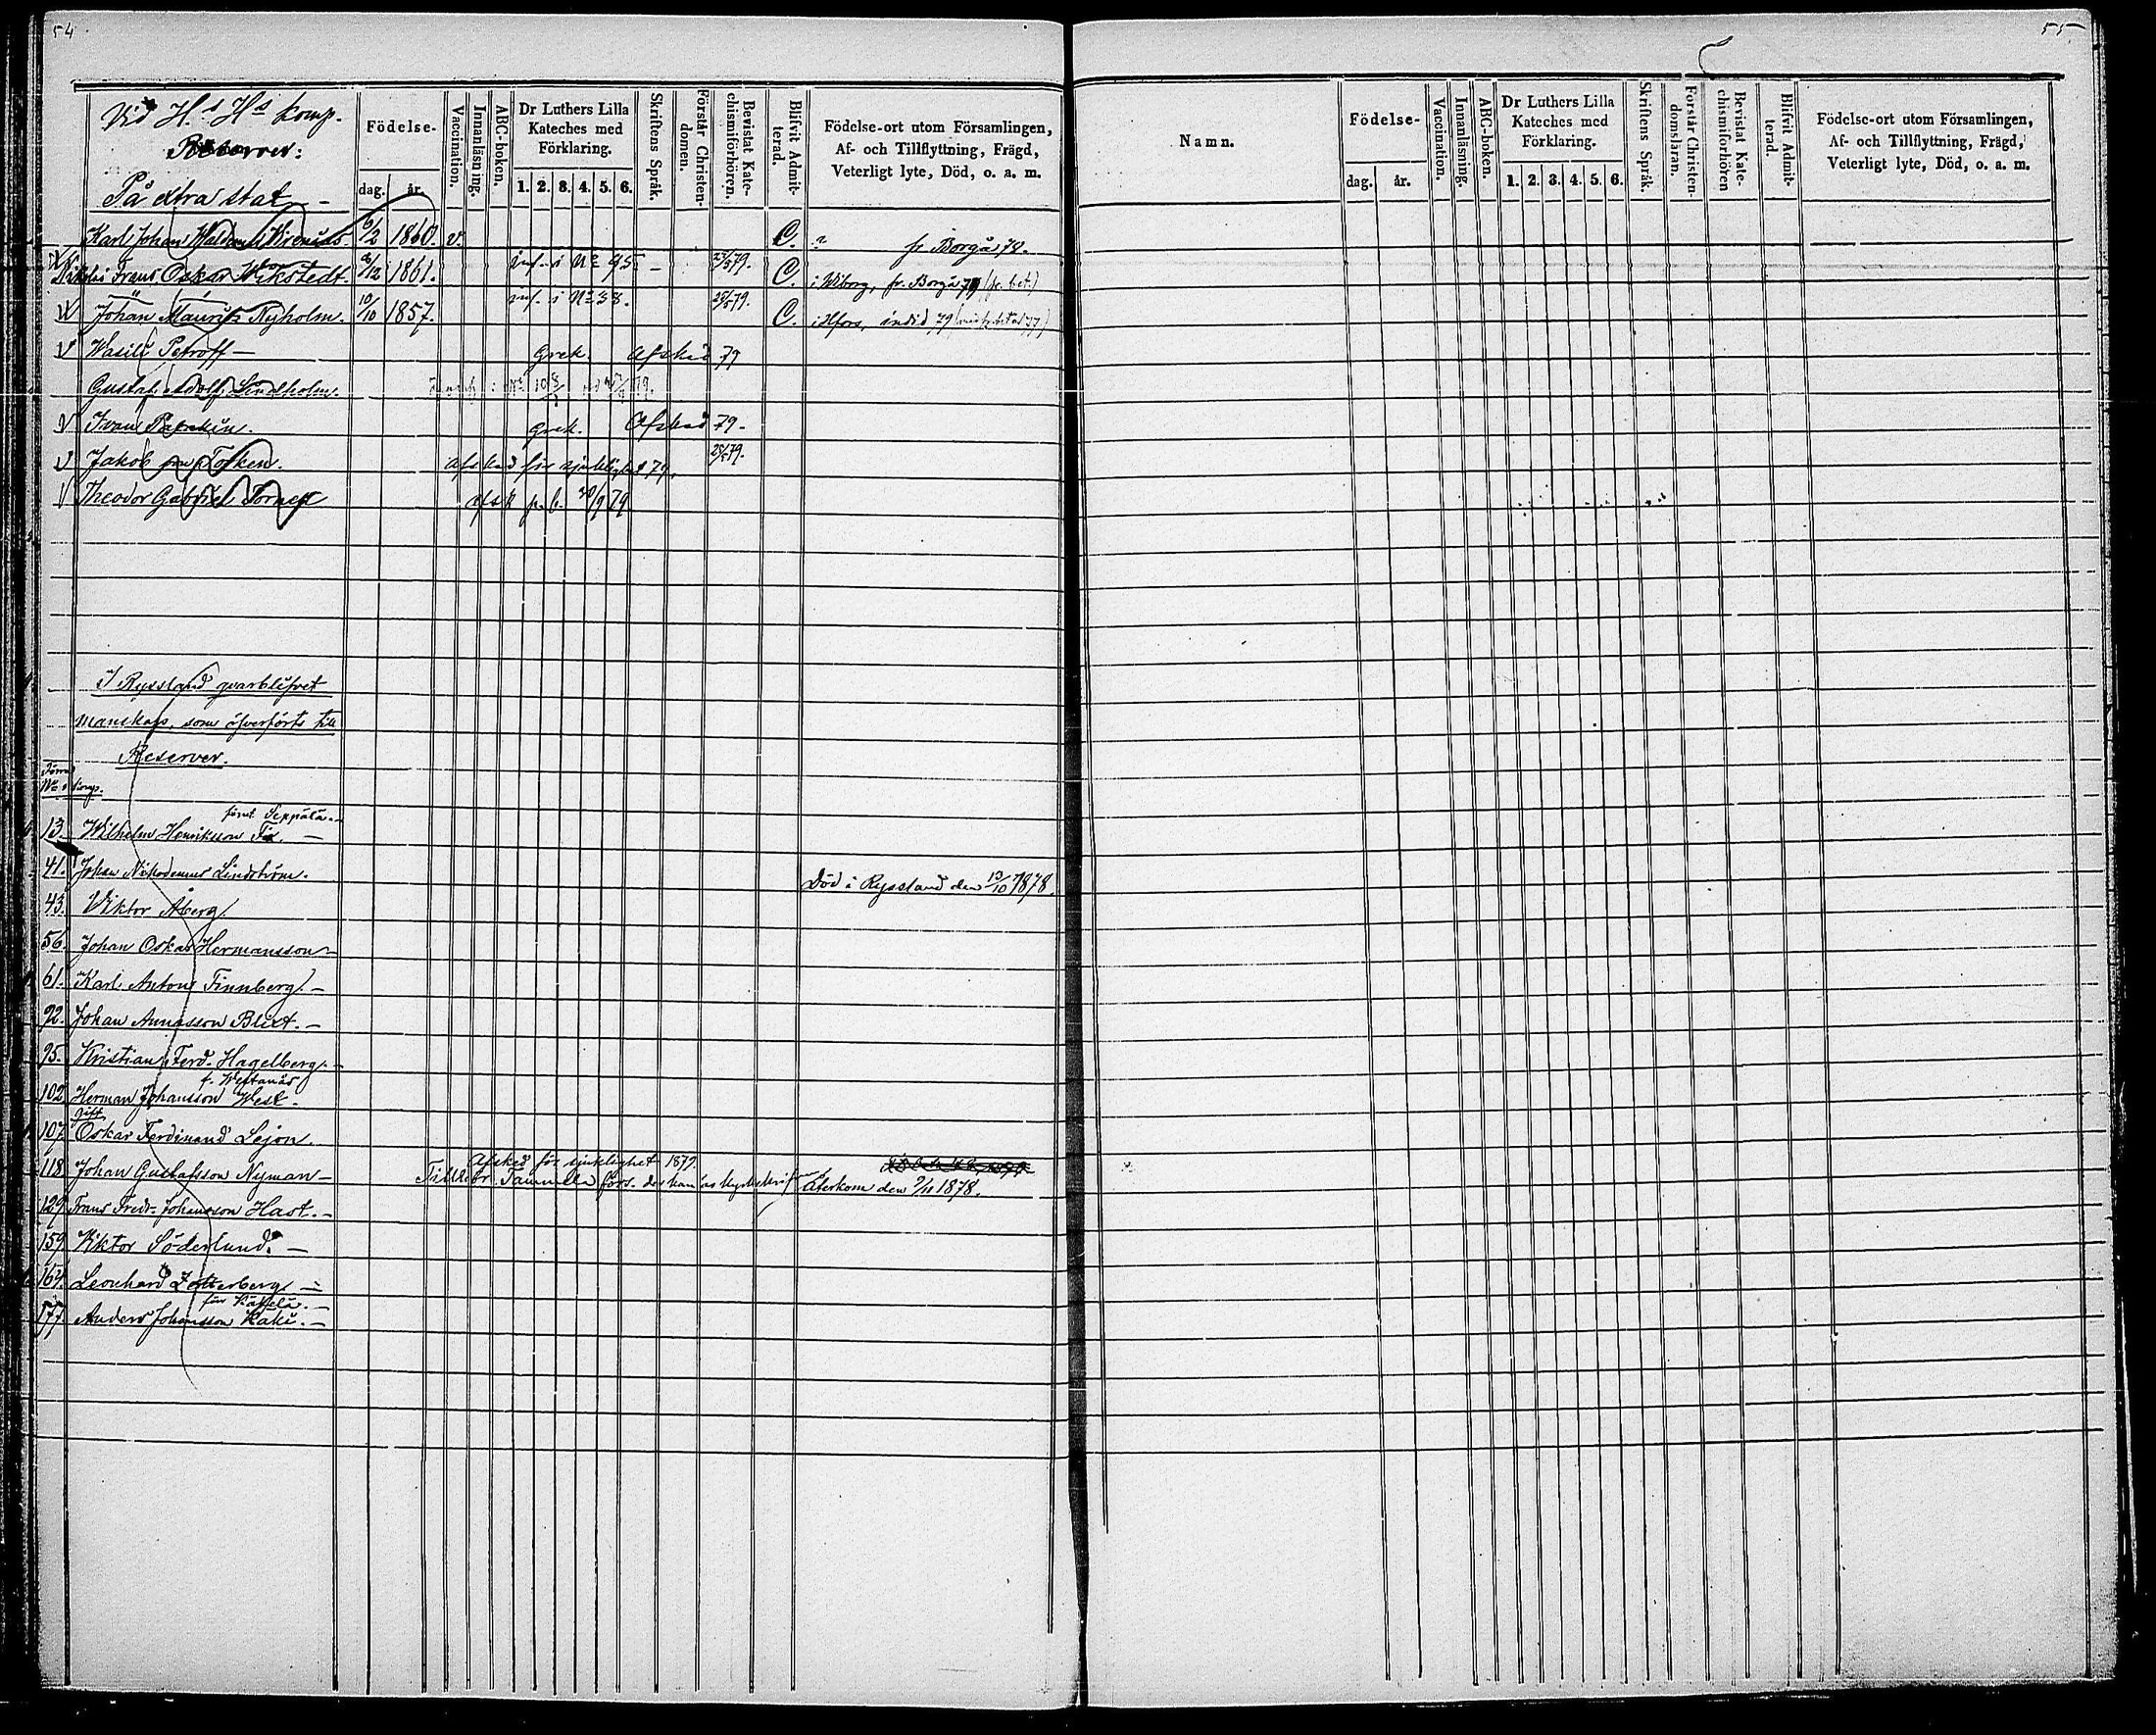 54
Vid H.s Hs komp.
Reserver:
På extra stat. –
Födelse-
dag. år.
Vaccination.
Innanläsning.
ABC-boken.
Dr Luthers Lilla
Kateches med
Förklaring.
1. 2. 3. 4. 5. 6.
Skriftens Språk.
Förstår Christen-
domen.
Bevistat Kate-
chismiförhören.
Blifvit Admit-
terad.
Födelse-ort utom Församlingen,
Af- och Tillflyttning, Frägd,
Veterligt lyte, Död, o. a. m.
Karl Johan 6/2 1860. v. C. fr. Borgå 78.
Frans Oskar Wikstedt. /12 1861. inf. i No 95 – 79. C. i Wiborg, fr. Borgå 79
Johan Maurits Nyholm. 10/10 1857. inf. i No 38. 79. C. i Hfors,
V Wasili Petroff – Grek. Afsked 79
Gustaf Adolf Lindholm.
V Ivan Grek. Afsked 79.
V Jakob Tolken. Afsked för sjuklighet 79. 79.
V Theodor Gabriel Afsk p. b. 30/9 79
I Ryssland qvarblifvet
manskap, som öfverförts till
Reserver.
No i komp.
förut Seppälä.
13. Wilhelm Henriksson –
41. Johan Nikodemus Lindström. Död i Ryssland den 13/10 1878.
43. Viktor Åberg.
56. Johan Oskar Hermansson –
61. Karl Anton Finnberg. –
92. Johan Annasson Blixt. –
95. Kristian Ferd. Hagelberg. –
102 Herman Johansson West.
gift
107. Oskar Ferdinand Lejon.
Afsked för sjuklighet 1879.
118. Johan Gustafsson Nyman – Tillhör Tammela förs. der han är kyrkskrifven Återkom den 9/11 1878.
129. Frans Fredr. Johansson Hast. –
159. Viktor Söderlund. –
167. Leonhard Zetterberg –
177. Anders Johansson Käki. –
55
Namn.
Födelse-
dag. år.
Vaccination.
Innanläsning.
ABC-boken.
Dr Luthers Lilla
Kateches med
Förklaring.
1. 2. 3. 4. 5. 6.
Skriftens Språk.
Förstår Christen-
domsläran.
Bevistat Kate-
chismiförhören
Blifvit Admit-
terad.
Födelse-ort utom Församlingen,
Af- och Tillflyttning, Frägd,
Veterligt lyte, Död, o. a. m.